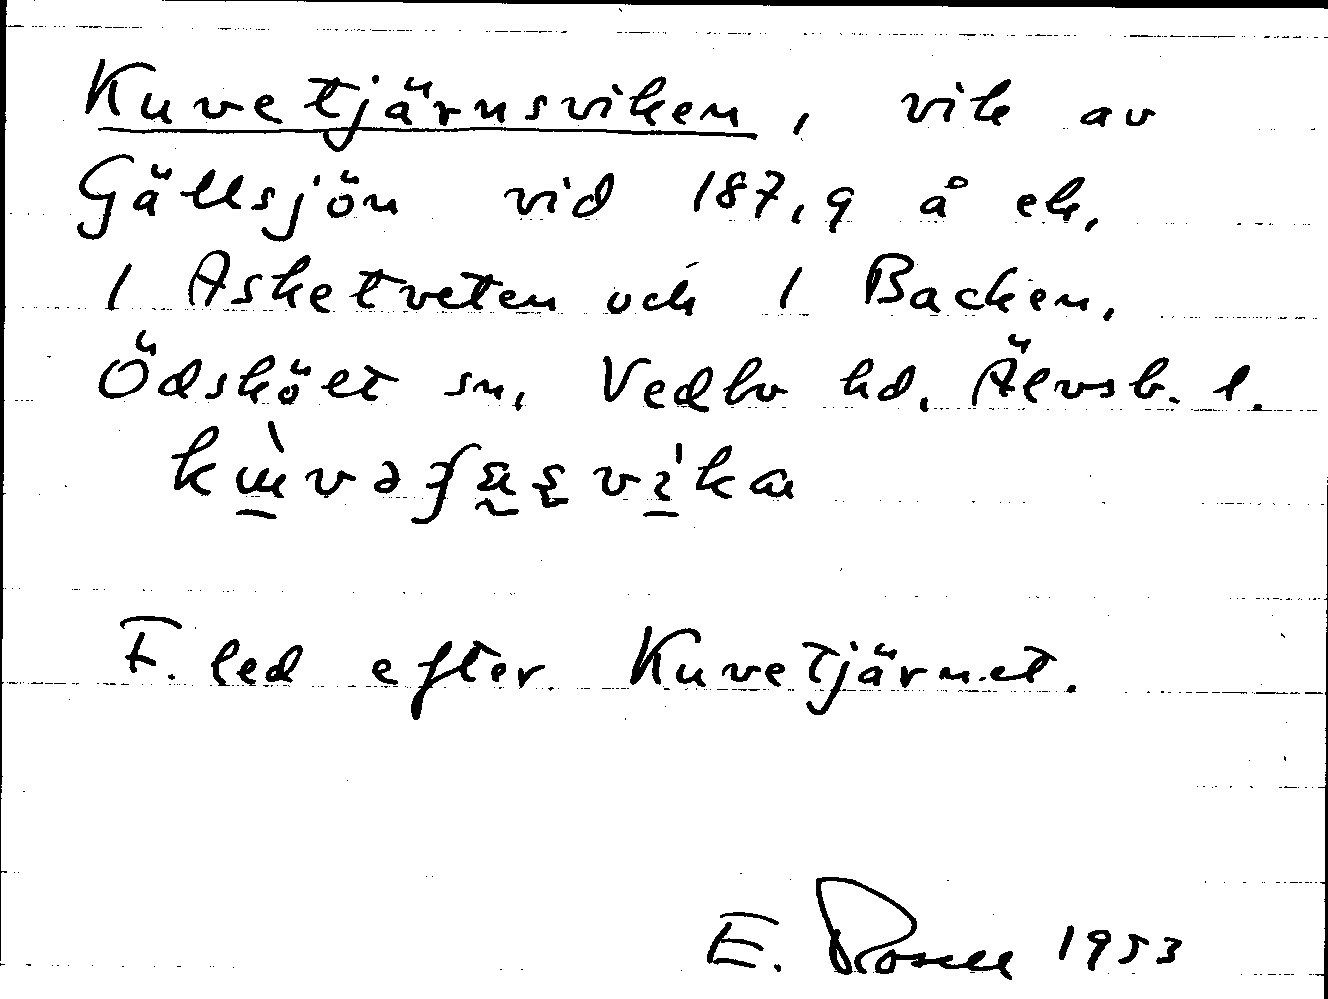 Kuvetjärnsviken, vik av
Gällsjön vid 187,9 å ek,
1 Asketveten och 1 Backen,
Ödskölt sn, Vedbo hd. Älvsb. l.
F. led efter Kuvetjärnet.
E. Rosell 1953